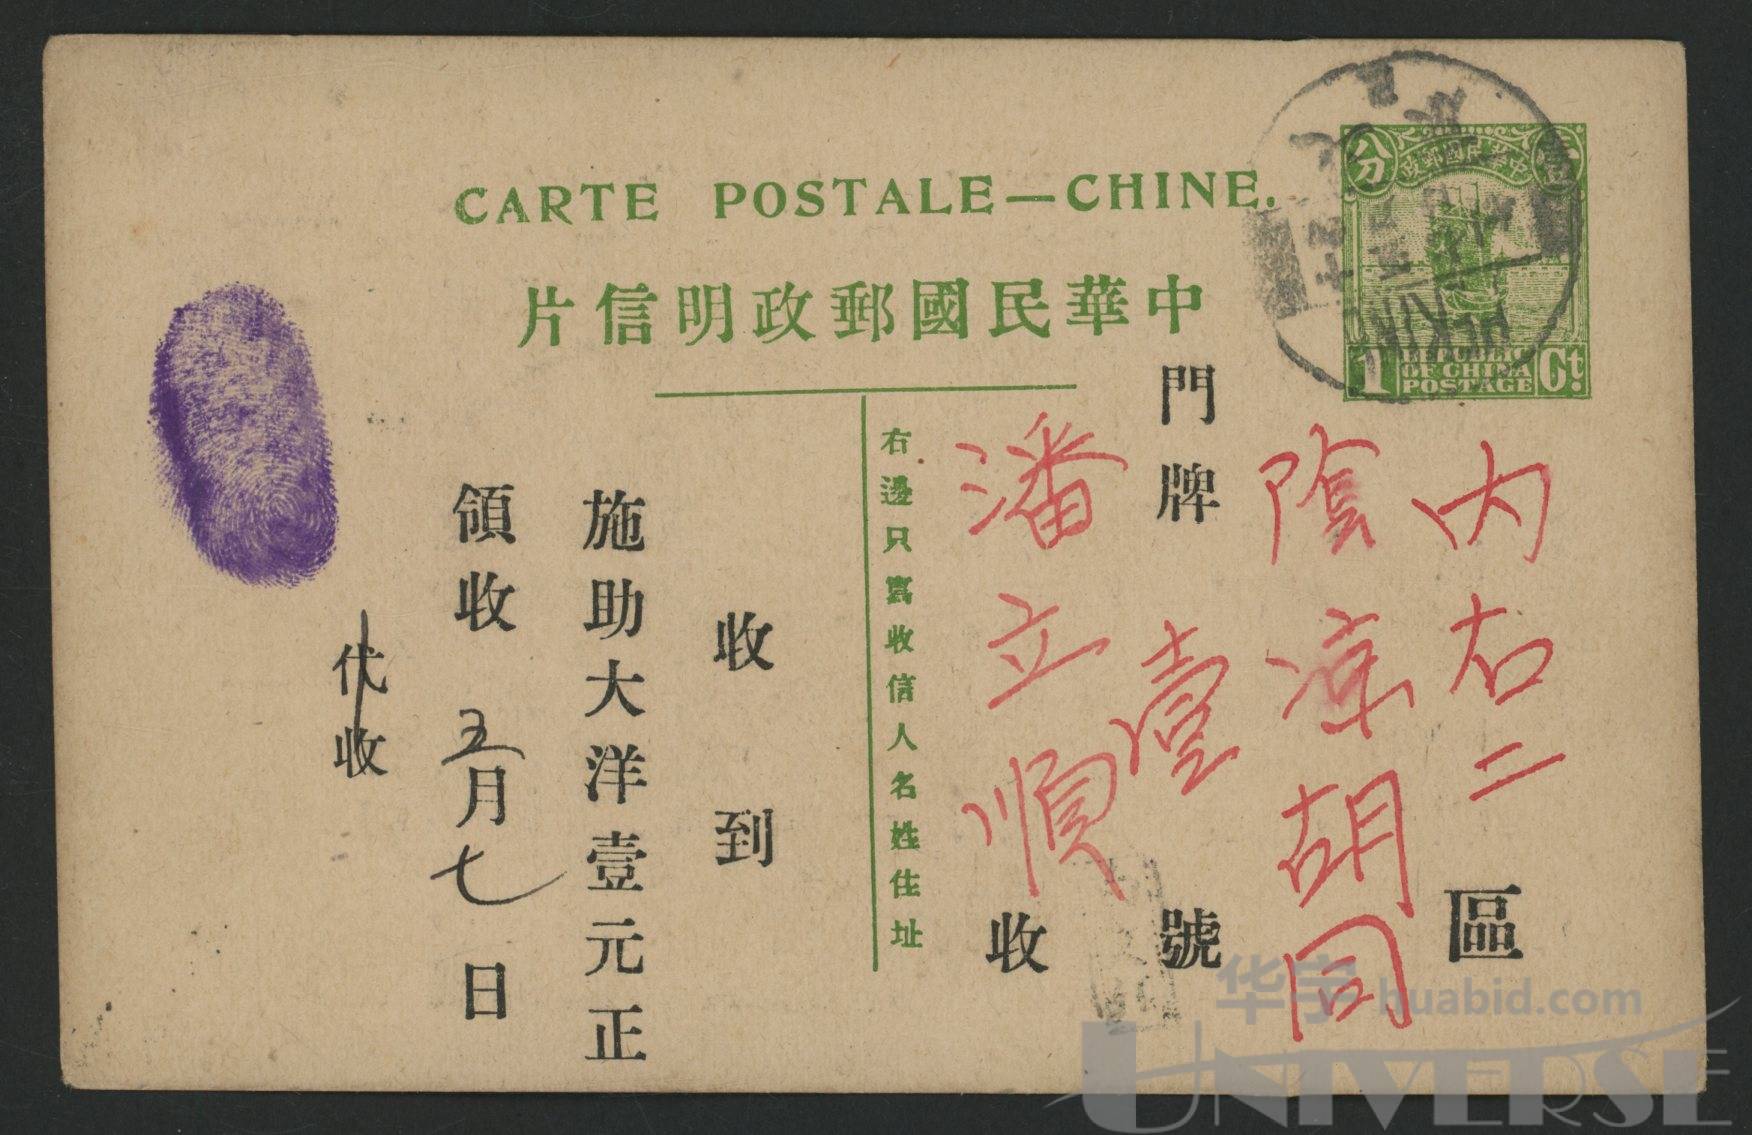 CARTE POSTALE—CHINE.
中華民國郵政明信片
中華民國郵政
壹
分
1 Ct.
REPUBLIC
OF CHINA
POSTAGE
PEKING
內右二區
陰涼胡同
門牌壹號
潘立順收
右邊只寫收信人名姓住址
收到
施助大洋壹元正
領收 五月七日
代收
华宇 huabid.com
UNIVERSE